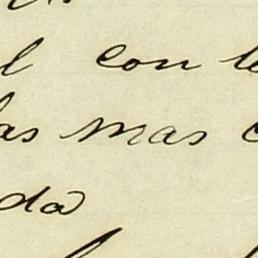 l con l
as mas c
da